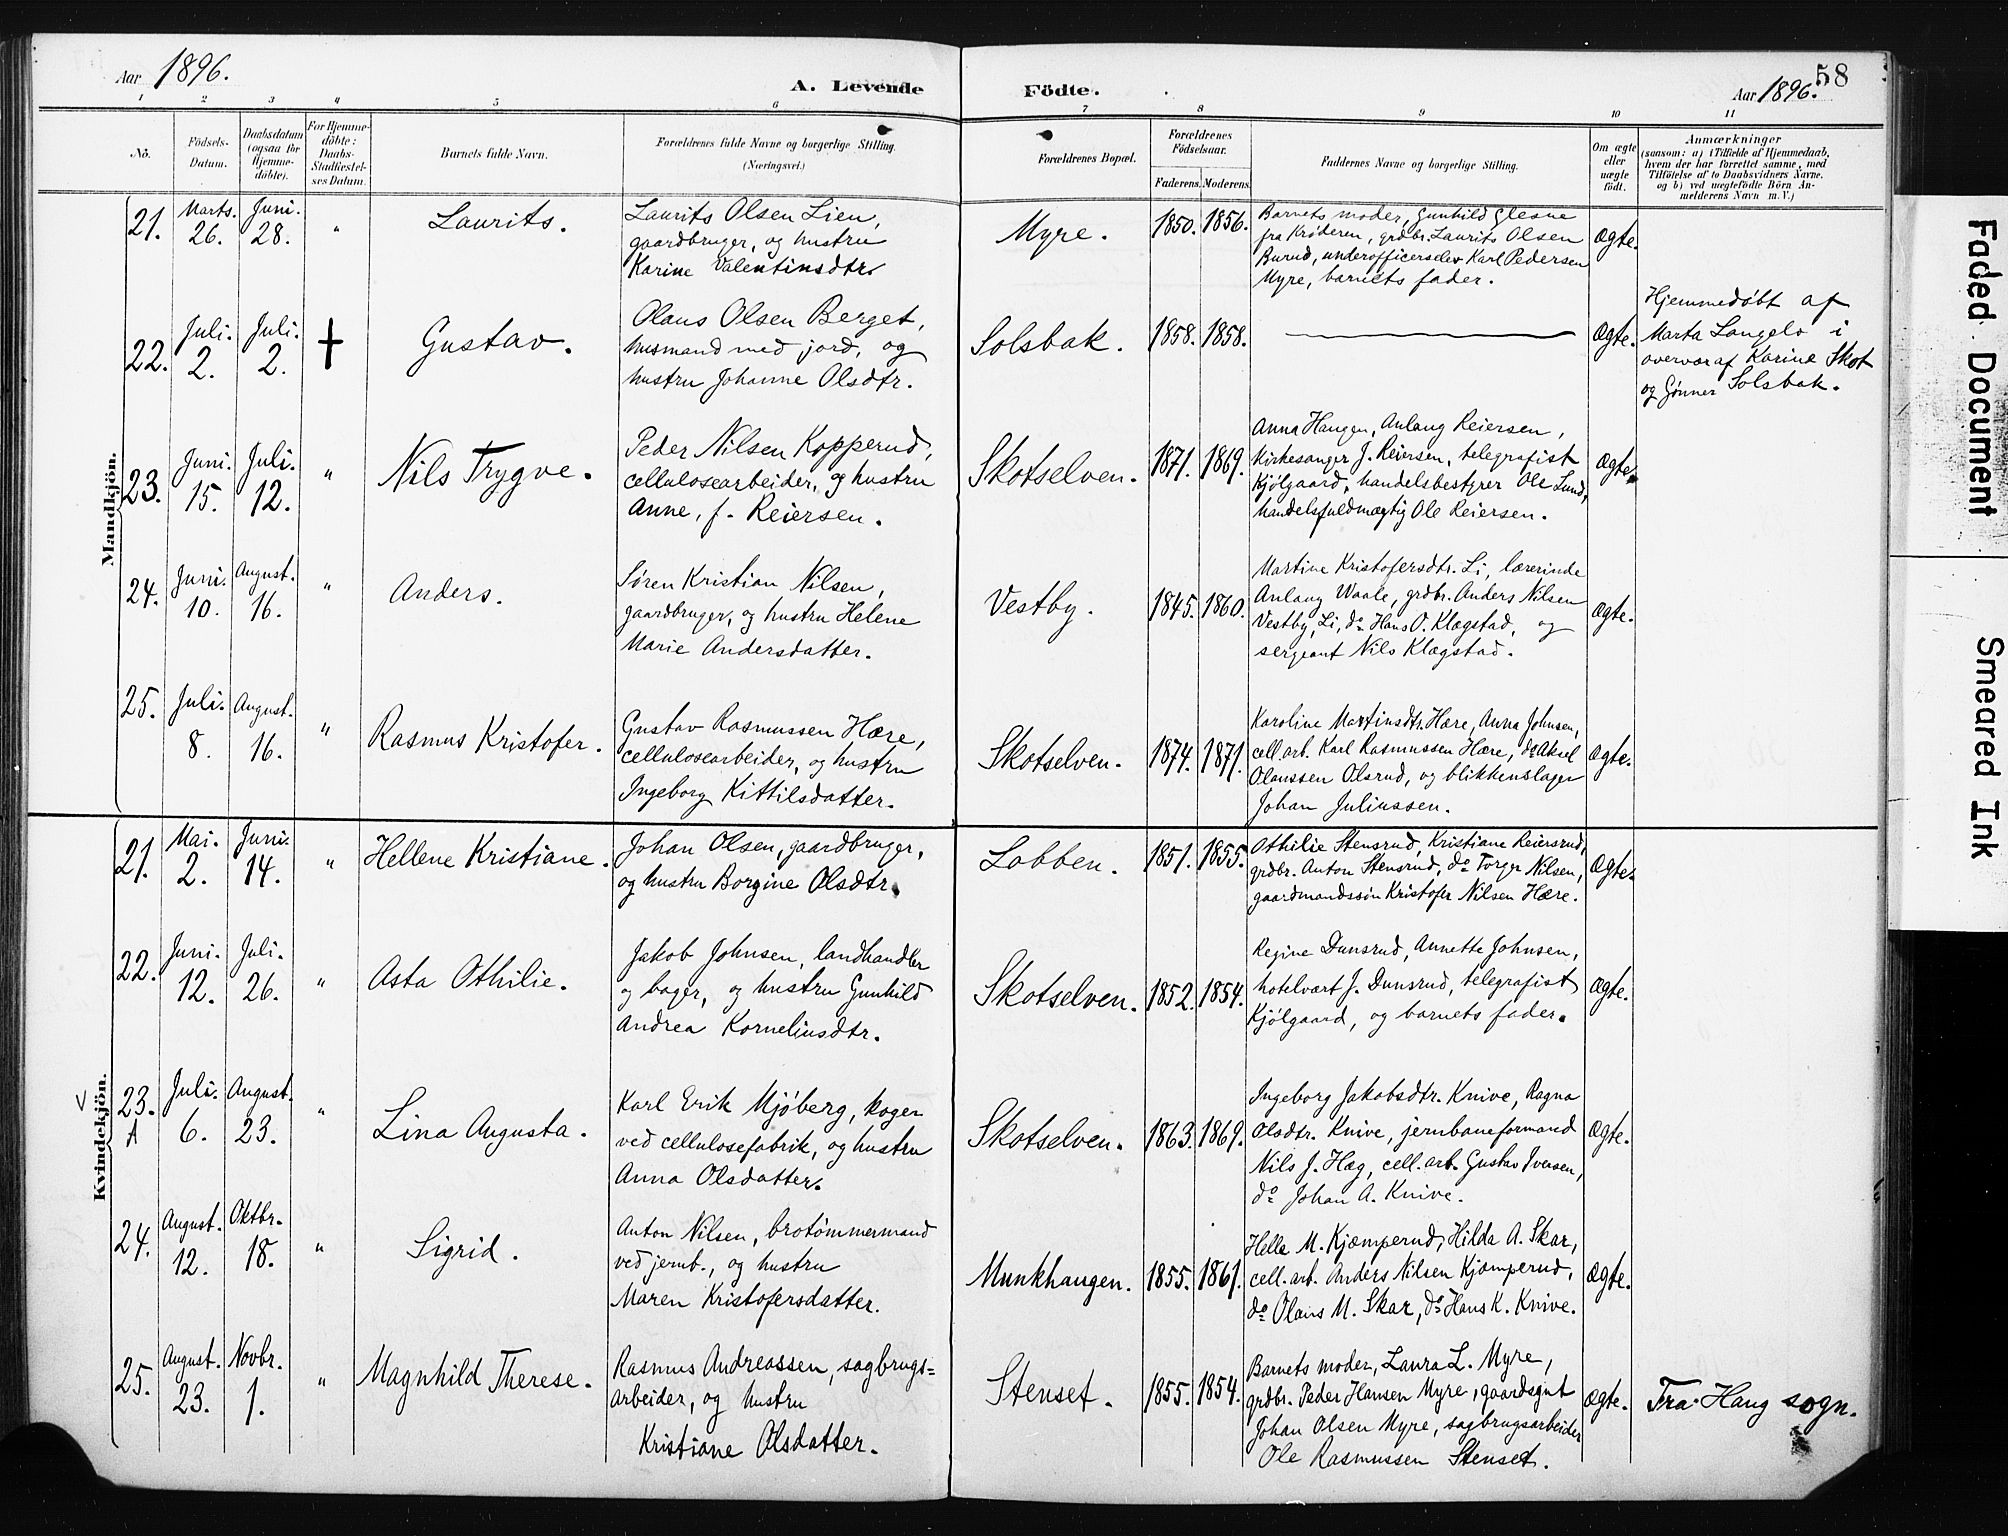 Aar 1896.
A. Levende Födte.
Aar 1896. 58
1 2 3 4 5 6 7 8 9 10 11
No.
Födsels-Datum.
Daabsdatum (ogsaa for Hjemme-döbte).
For Hjemme-döbte: Daabs-Stadfæstel-ses Datum.
Barnets fulde Navn.
Forældrenes fulde Navne og borgerlige Stilling. (Næringsvei.)
Forældrenes Bopæl.
Forældrenes Födselsaar.
Faderens. Moderens.
Faddernes Navne og borgerlige Stilling.
Om ægte eller uægte födt.
Anmærkninger
(saasom: a) i Tilfælde af Hjemmedaab,
hvem der har forrettet samme, med
Tilföielse af to Daabsvidners Navne.
og b) ved uægtefödte Börn An-
melderens Navn m. V.)
Mandkjön.
21. Marts. 26. Juni. 28. " Laurits.
Laurits Olsen Lien,
gaardbruger, og hustru
Karine Valentinsdtr.
Myre. 1850. 1856.
Barnets moder, Gunhild Glesne
fra Krøderen, grdbr. Laurits Olsen
Burud, underofficerselev Karl Pedersen
Myre, barnets fader.
Ægte.
22. Juli. 2. Juli. 2. † Gustav.
Olaus Olsen Berget,
husmand med jord, og
hustru Johanne Olsdtr.
Solsbak. 1858. 1858.
Ægte.
Hjemmedøbt af
Marta Langelo i
overvær af Karine Skot
og Gønner Solsbak.
23. Juni. 15. Juli. 12. " Nils Trygve.
Peder Nilsen Kopperud,
cellulosearbeider, og hustru
Anne, f. Reiersen.
Skotselven. 1871. 1869.
Anna Haugen, Aulaug Reiersen,
kirkesanger J. Reiersen, telegrafist
Kjølgaard, handelsbestyrer Ole Lund,
handelsfuldmægtig Ole Reiersen.
Ægte.
24. Juni. 10. August. 16. " Anders.
Søren Kristian Nilsen,
gaardbruger, og hustru Helene
Marie Andersdatter.
Vestby. 1845. 1860.
Martine Kristofersdtr. Li, lærerinde
Aulaug Waale, grdbr. Anders Nilsen
Vestby, Li, do Hans O. Klægstad, og
sergeant Nils Klægstad.
Ægte.
25. Juli. 8. August. 16. " Rasmus Kristofer.
Gustav Rasmussen Hære,
cellulosearbeider, og hustru
Ingeborg Kittilsdatter.
Skotselven. 1874. 1871.
Karoline Martinsdtr. Hære, Anna Johnsen,
cell. arb. Karl Rasmussen Hære, do Aksel
Olaussen Olsrud, og blikkenslager
Johan Juliussen.
Ægte.
Kvindekjön.
21. Mai. 2. Juni. 14. " Hellene Kristiane.
Johan Olsen, gaardbruger,
og hustru Borgine Olsdtr.
Lobben. 1851. 1855.
Othilie Stensrud, Kristiane Reiersrud,
grdbr. Anton Stensrud, do Torger Nilsen,
gaardmandssøn Kristofer Nilsen Hære.
Ægte.
22. Juni. 12. Juli. 26. " Asta Othilie.
Jakob Johnsen, landhandler
og bager, og hustru Gunhild
Andrea Korneliusdtr.
Skotselven. 1852. 1854.
Regine Dunsrud, Annette Johnsen,
hotelvært J. Dunsrud, telegrafist
Kjølgaard, og barnets fader.
Ægte.
23. A Juli. 6. August. 23. " Lina Augusta.
Karl Erik Mjøberg, koger
ved cellulosefabrik, og hustru
Anna Olsdatter.
Skotselven. 1863. 1869.
Ingeborg Jakobsdtr. Knive, Ragna
Olsdtr. Knive, jernbaneformand
Nils J. Hæg, cell. arb. Gustav Iversen,
do Johan A. Knive.
Ægte.
24. August. 12. Oktbr. 18. " Sigrid.
Anton Nilsen, brotømmermand
ved jernb., og hustru
Maren Kristofersdatter.
Munkhaugen. 1855. 1861.
Helle M. Kjæmperud, Hilda A. Skar,
cell. arb. Anders Nilsen Kjæmperud,
do Olaus M. Skar, do Hans K. Knive.
Ægte.
25. August. 23. Novbr. 1. " Magnhild Therese.
Rasmus Andreassen, sagbrugs=
arbeider, og hustru
Kristiane Olsdatter.
Stenset. 1855. 1854.
Barnets moder, Laura L. Myre,
grdbr. Peder Hansen Myre, gaardsgut
Johan Olsen Myre, sagbrugsarbeider
Ole Rasmussen Stenset.
Ægte.
Fra Haug sogn.
Faded Document
Smeared Ink